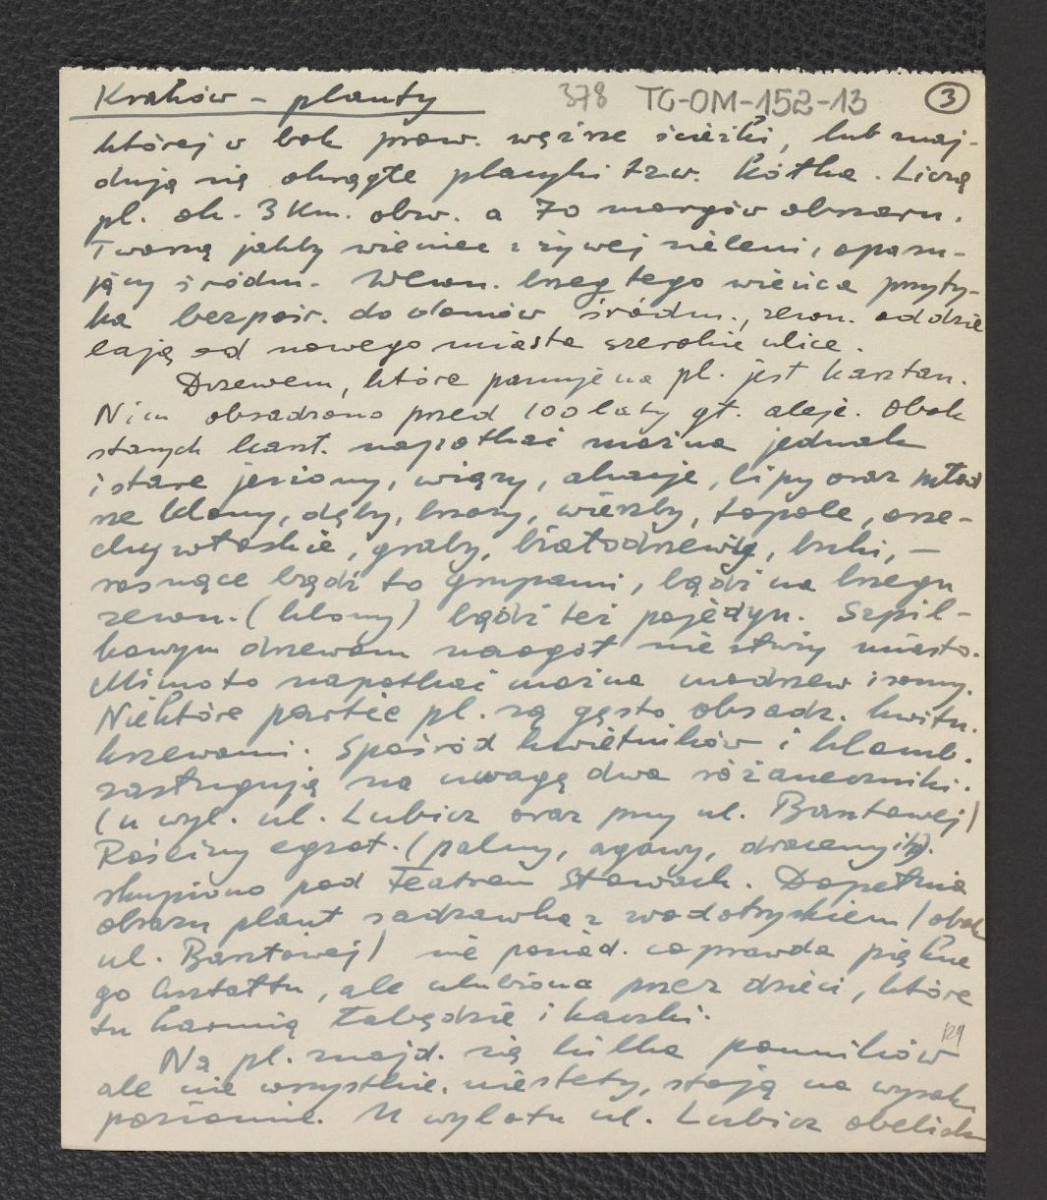 Kraków – planty 378 TG-OM-152-13 3
której w bok prow. węższe ścieżki, lub znaj-
dują się okrągłe placyki tzw. kółka. Liczą
pl. ok. 3 Km. obw. a 70 morgów obszaru.
Tworzą jakby wieniec z żywej zieleni, opasu-
jący śródm. Wewn. brzeg tego wieńca przyty-
ka bezpośr. do domów śródm., zewn. oddzie
lają od nowego miasta szerokie ulice.
Drzewem, które panuje na pl. jest kasztan.
Nim obsadzono przed 100 laty gł. aleje. Obok
starych kaszt. napotkać można jednak
i stare jesiony, wiązy, akacje, lipy oraz młod
sze klony, dęby, brzozy, wierzby, topole, orze-
chy włoskie, graby, białodrzewy, buki, –
rosnące bądź to grupami, bądź na brzegu
zewn. (klony) bądź też pojedyn. Szpil-
kowym drzewom naogół nie służy miasto.
Mimo to napotkać można modrzew i sosny.
Niektóre partie pl. są gęsto obsadz. kwitn.
krzewami. Spośród kwietników i klomb.
zasługują na uwagę dwa różaneczniki.
(u wyl. ul. Lubicz oraz przy ul. Basztowej)
Rośliny egzot. (palmy, agawy, draceny itp).
skupiono pod Teatrem Słowack. Dopełnia
obrazu plant sadzawka z wodotryskiem (obok
ul. Basztowej) nie posiad. coprawda piękne
go kształtu, ale ulubiona przez dzieci, które
tu karmią łabędzie i kaczki.
129
Na pl. znajd. się kilka pomników
ale nie wszystkie, niestety, stoją na wysok.
poziomie. U wylotu ul. Lubicz obelisk